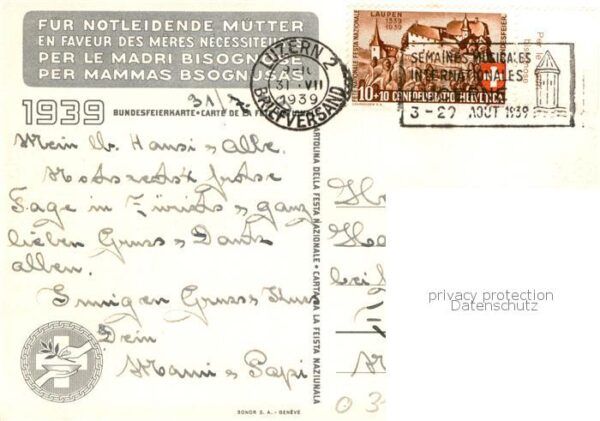 FÜR NOTLEIDENDE MÜTTER
EN FAVEUR DES MERES NECESSITEUSES
PER LE MADRI BISOGNOSE
PER MAMMAS BSOGNUSAS
1939
BUNDESFEIERKARTE • CARTE DE LA FÊTE
LUZERN 2
31. VII
1939
BRIEFVERSAND
LAUPEN
1339
1939
10+10 CONFOEDERATIO HELVETICA
SEMAINES MUSICALES
INTERNATIONALES
3-29 AOUT 1939
Mein lb. Hansi & Alle.
Tage in Zürich & ganz
lieben Gruss & Dank
allen.
Innigen Gruss & Kuss
Dein
Mami & Papi
CARTOLINA DELLA FESTA NAZIONALE • CARTA DA LA FEISTA NAZIUNALA
privacy protection
Datenschutz
SONOR S. A. - GENÈVE